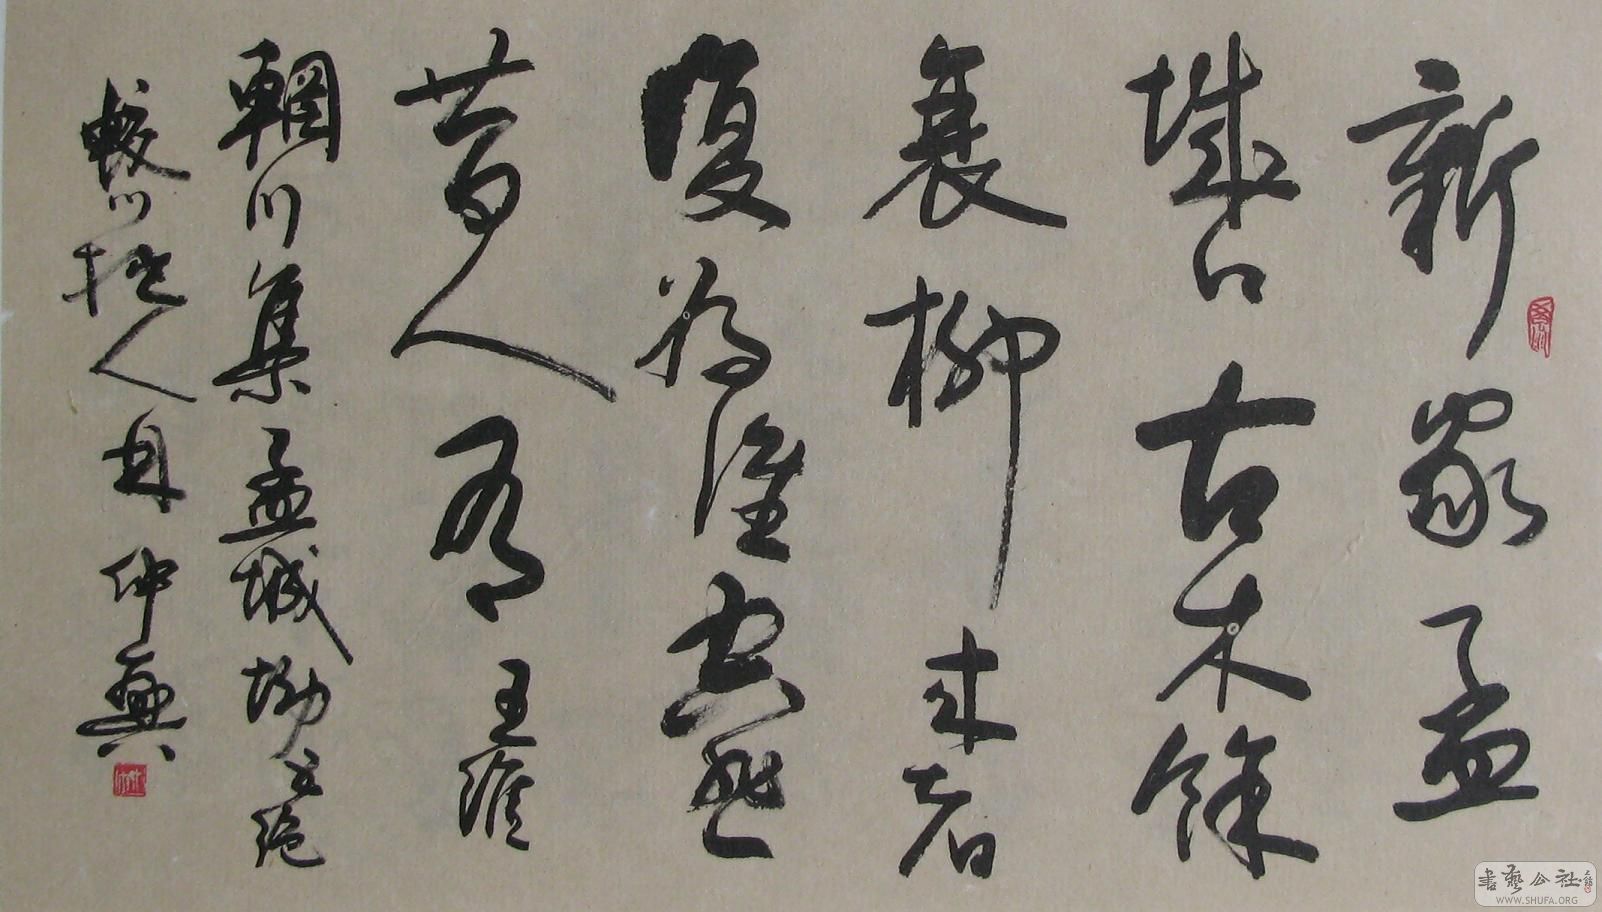 新家孟
城口古木餘
衰柳来者
復為誰空悲
昔人有 王維
輞川集孟城坳五絕
蛟川拙人仲興
書藝公社
WWW.SHUFA.ORG